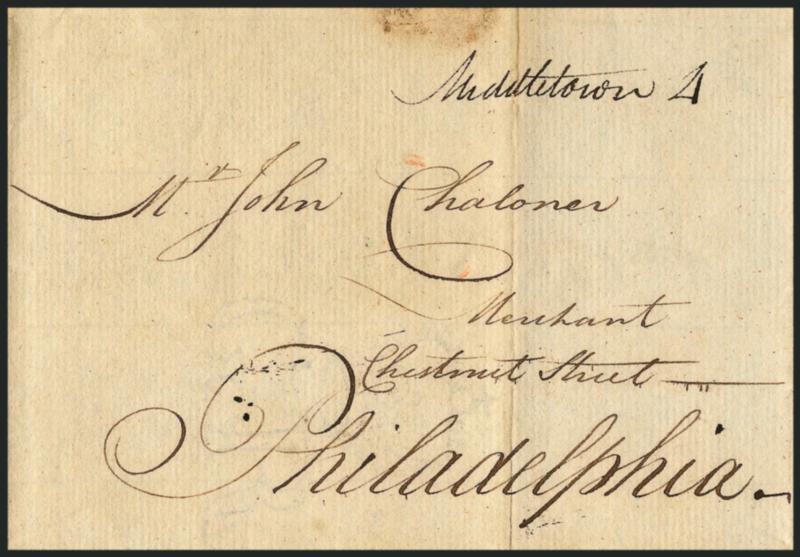 Middletown 4
Mr John Chaloner
Merchant
Chestnut Street
Philadelphia.